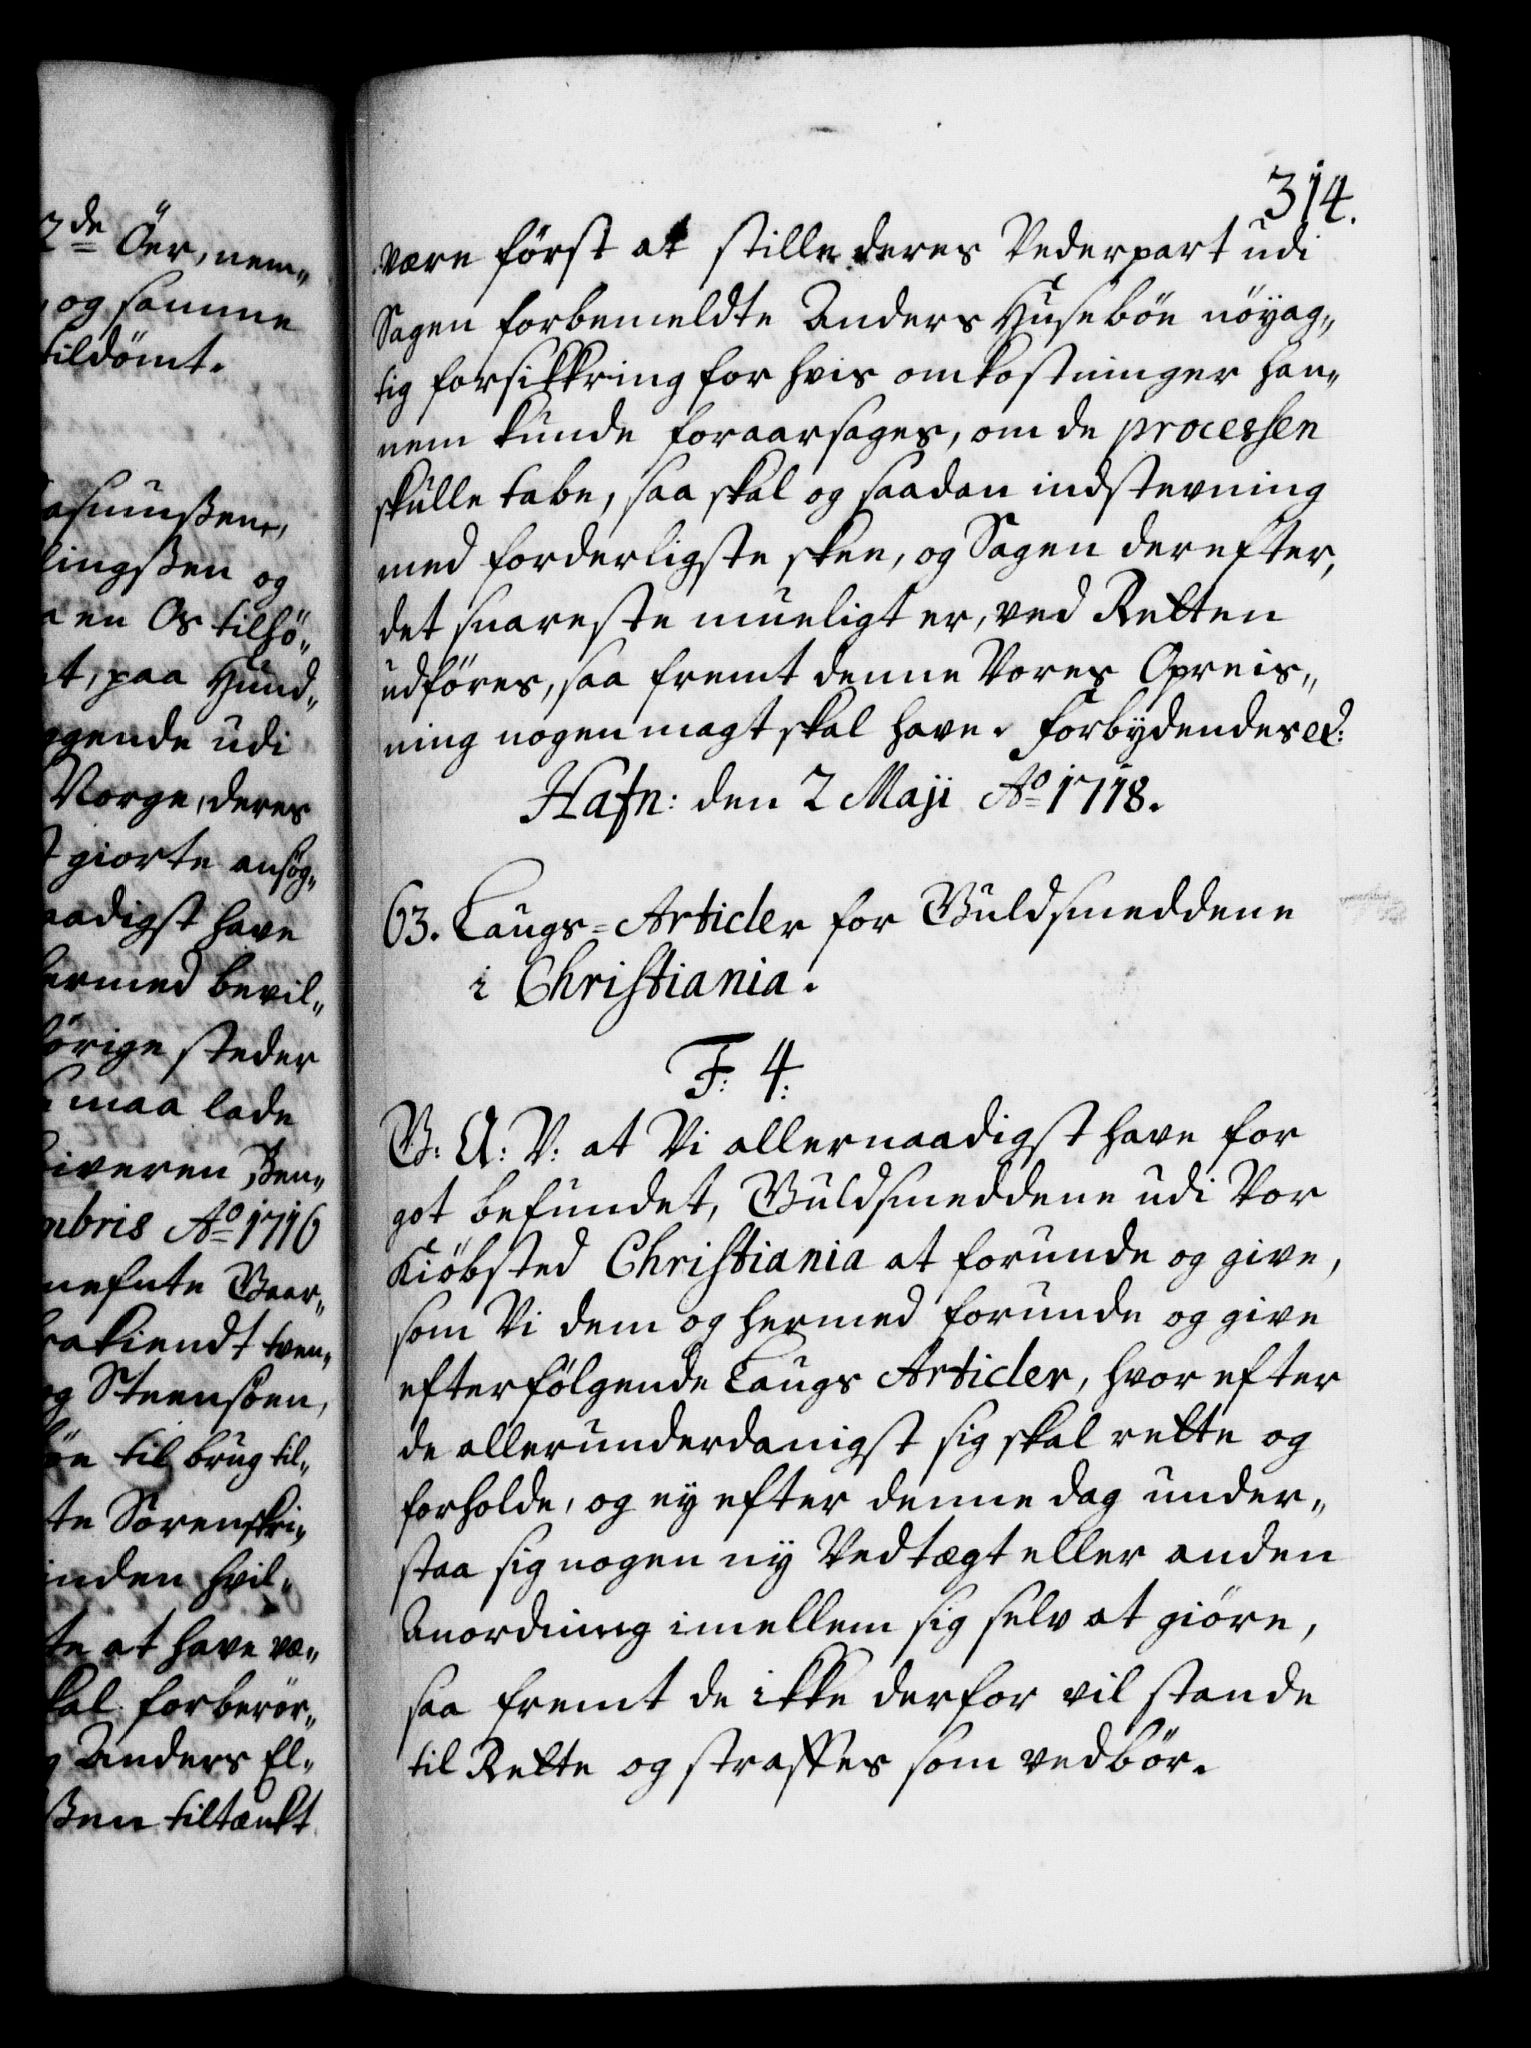 2de Öer, nem„
og samme
tildömt.
asmusßen,
lingsßen og
en Os tilhö„
t, paa Hund„
ggende udi
Norge, deres
giorte ansög„
aadigst have
ermed bevil„
hörige steder
maa lade
iveren Jen„
mbris Ao 1716
nefnte Gaar„
rakiendt tven„
og Steensöen,
öe til brug til„
te Sorenskri„
inden hvil„
te at have væ„
kal forberör„
Anders El„
ßen tiltænkt
314.
være först at stille deres Vederpart udi
Sagen forbemeldte Anders Huseböe nöyag„
tig forsikkring for hvis omkostninger han„
nem kunde foraarsages, om de processen
skulle tabe, saa skal og saadan indstevning
med forderligste skee, og Sagen derefter,
det snareste mueligt er, ved Retten
udföres, saa fremt denne Vores Opreis„
ning nogen magt skal have. Forbydendes etc:
Hafn: den 2 Maji Ao 1718.
63. Laugs=Articler for Guldsmeddene
i Christiania.
F: 4:
G: A: V: at Vi allernaadigst have for
got befundet, Guldsmeddene udi Vor
Kiöbsted Christiania at forunde og give,
som Vi dem og hermed forunde og give
efterfölgende Laugs Articler, hvor efter
de allerunderdanigst sig skal rette og
forholde, og ey efter denne dag under„
staa sig nogen ny Vedtægt eller anden
Anordning imellem sig selv at giöre,
saa fremt de ikke derfor vil stande
til Rette og straffes som vedbör.